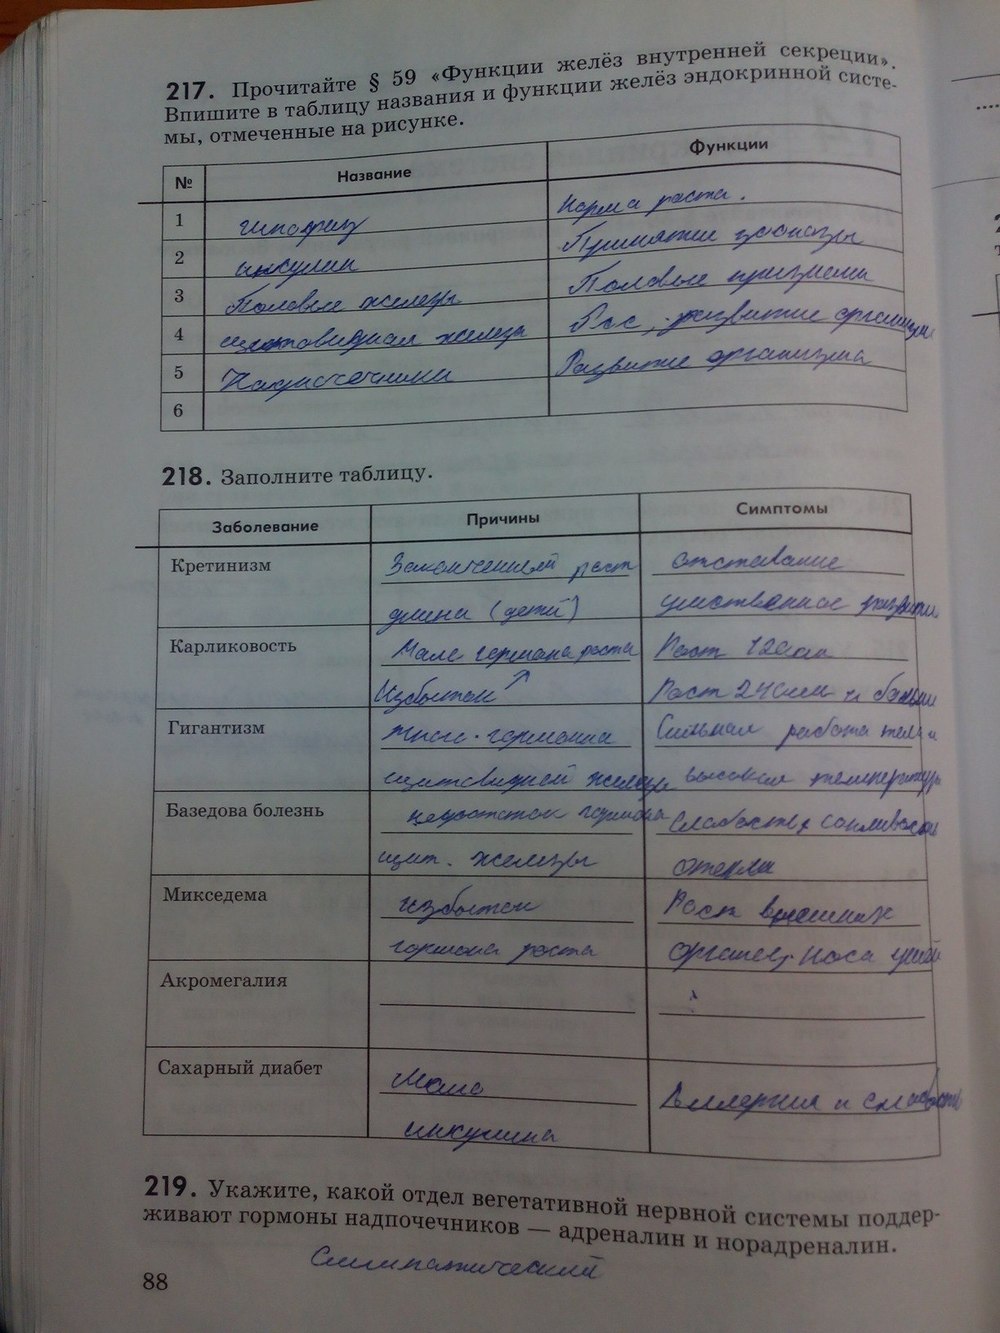 217. Прочитайте § 59 «Функции желёз внутренней секреции».
Впишите в таблицу названия и функции желёз эндокринной систе-
мы, отмеченные на рисунке.
№ Название Функции
1 гипофиз Норма роста.
2 инкулин Принятие
3 Половые железы Половые признаки
4 щитовидная железа Рос, развитие организм
5 Надпочечники Развитие организма
6
218. Заполните таблицу.
Заболевание Причины Симптомы
Кретинизм Законченный рост отставание
длина (детей) умственное развити
Карликовость Мало гормона роста Рост 120см
Избыток Рост 240см и больши
Гигантизм гормонна Сильная работа тела и
щитовидной железы высокая температура
Базедова болезнь недостаток гормона Слабость, сонливость
щит. железы отеки
Микседема избыток Рост внешних
гормона роста органов, носа ушей
Акромегалия
Сахарный диабет Мало и слабость
инкулина
219. Укажите, какой отдел вегетативной нервной системы поддер-
живают гормоны надпочечников — адреналин и норадреналин.
Симпатический
88